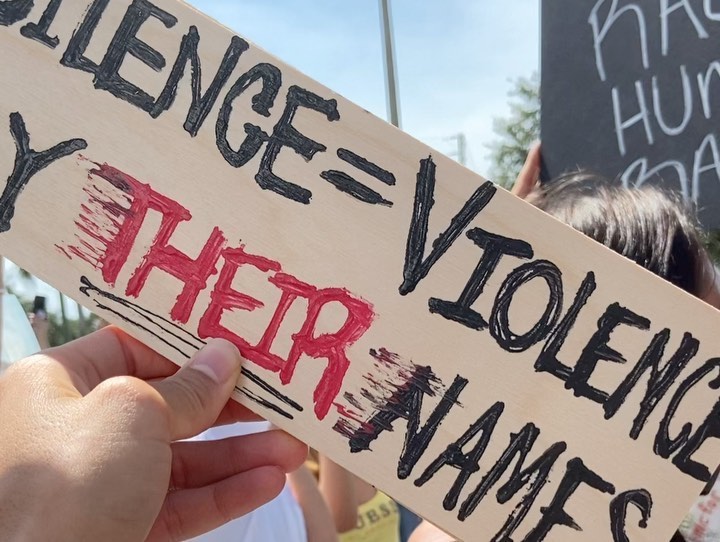 SILENCE = VIOLENCE
Y THEIR NAMES